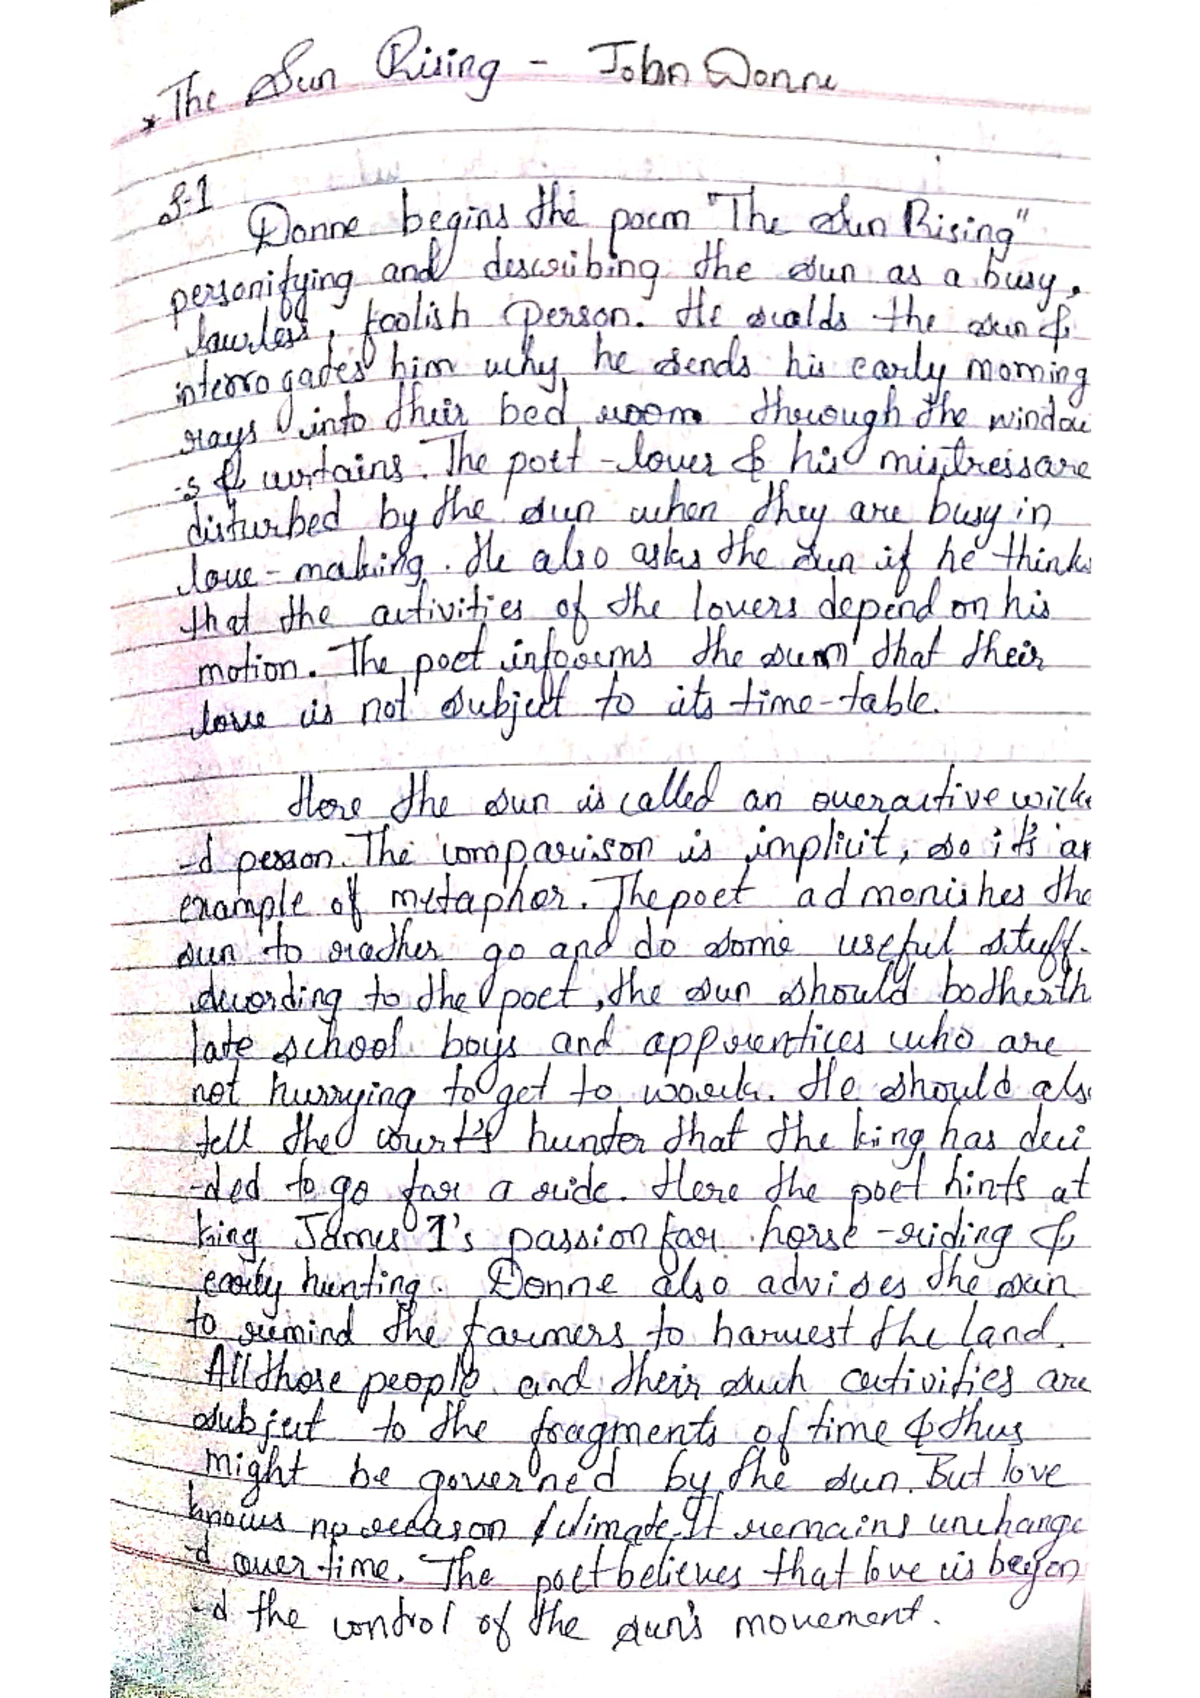 * The Sun Rising - John Donne
S-1
Donne begins the poem "The Sun Rising"
personifying and describing the sun as a busy,
lawless, foolish person. He scalds the sun &
interrogates him why he sends his early morning
rays into their bed room through the window
-s & curtains. The poet-lover & his mistress are
disturbed by the sun when they are busy in
love-making. He also asks the sun if he thinks
that the activities of the lovers depend on his
motion. The poet informs the sun that their
love is not subject to its time-table.
Here the sun is called an overactive wicke
-d person. The comparison is implicit, so it's an
example of metaphor. The poet admonishes the
sun to rather go and do some useful stuff.
According to the poet, the sun should bother th
late school boys and apprentices who are
not hurrying to get to work. He should als
tell the court's hunter that the king has deci
-ded to go for a ride. Here the poet hints at
king James I's passion for horse-riding &
early hunting. Donne also advises the sun
to remind the farmers to harvest the land.
All those people and their such activities are
subject to the fragments of time & thus
might be governed by the sun. But love
knows no season / climate. It remains unchange
-d over time. The poet believes that love is beyon
-d the control of the sun's movement.